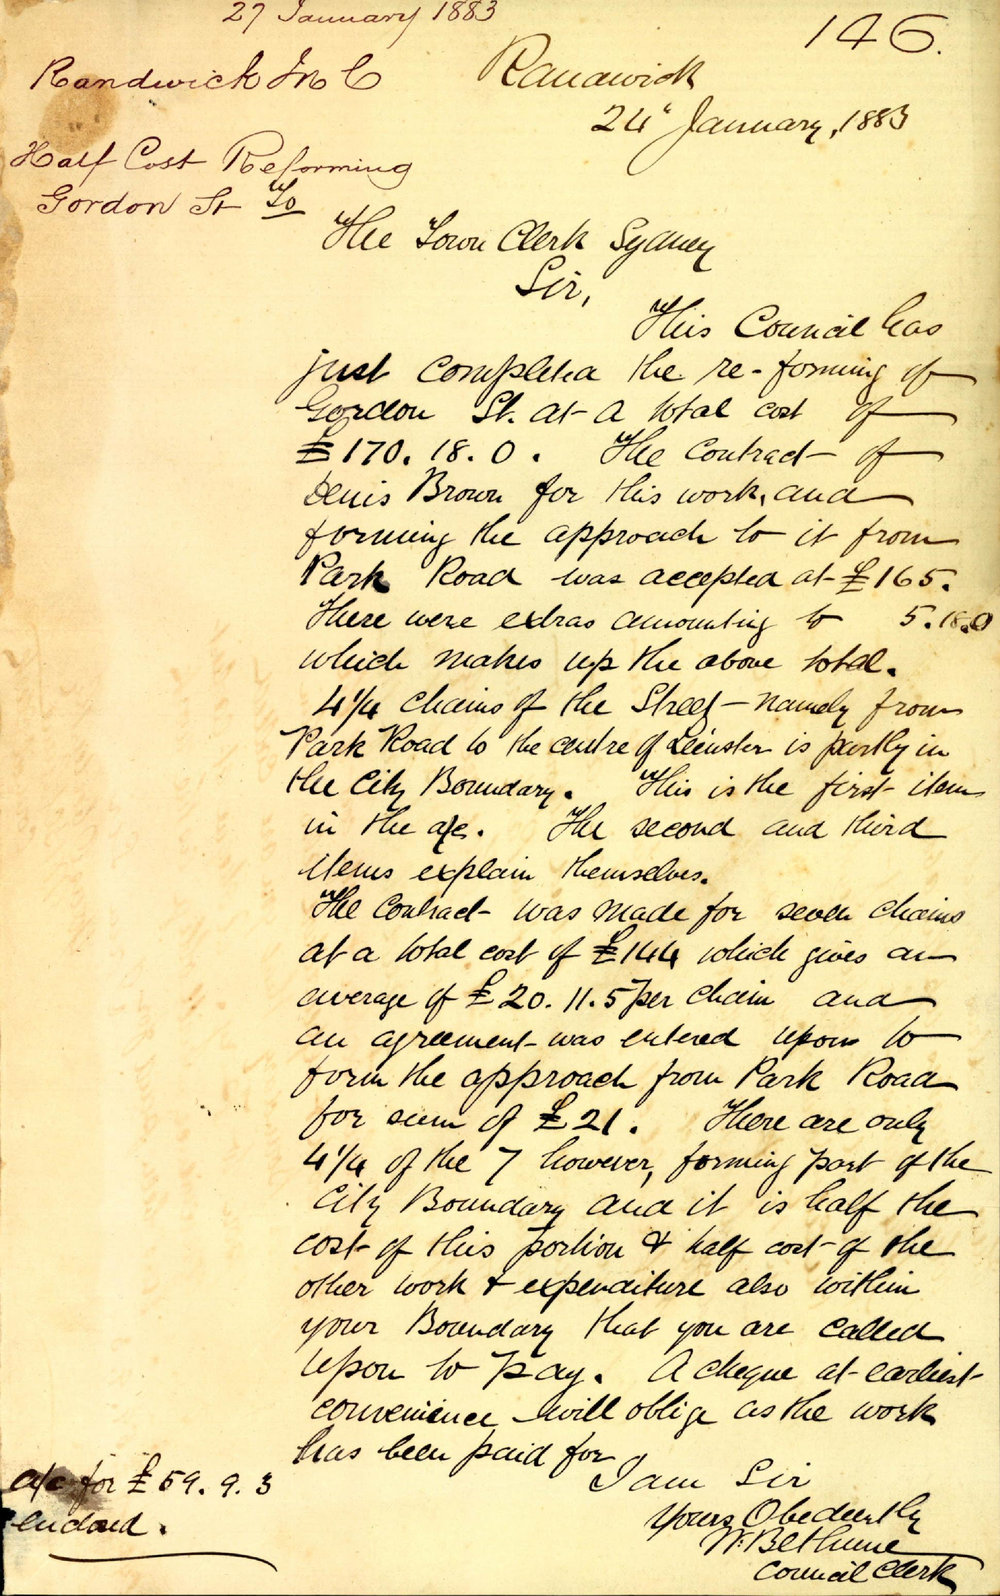 27 January 1883
146.
Randwick M C
Randwick
24" January, 1883
Half Cost Reforming
Gordon St To
The Town Clerk Sydney
Sir,
This Council has
just completed the re-forming of
Gordon St. at a total cost of
£170. 18. 0. The Contract of
Denis Brown for this work, and
forming the approach to it from
Park Road was accepted at £165.
There were extras amounting to 5.18.0
which makes up the above total.
4 1/4 chains of the Street - namely from
Park Road to the centre of Leinster is partly in
the City Boundary. This is the first item
in the a/c. The second and third
items explain themselves.
The Contract was made for seven chains
at a total cost of £144 which gives an
average of £20. 11. 5 per chain and
an agreement was entered upon to
form the approach from Park Road
for sum of £21. There are only
4 1/4 of the 7 however, forming part of the
City Boundary and it is half the
cost of this portion & half cost of the
other work & expenditure also within
your Boundary that you are called
upon to pay. A cheque at earliest
convenience will oblige as the work
has been paid for
I am Sir
Yours Obediently
W. Bethune
Council Clerk
a/c for £59. 9. 3
enclosed.